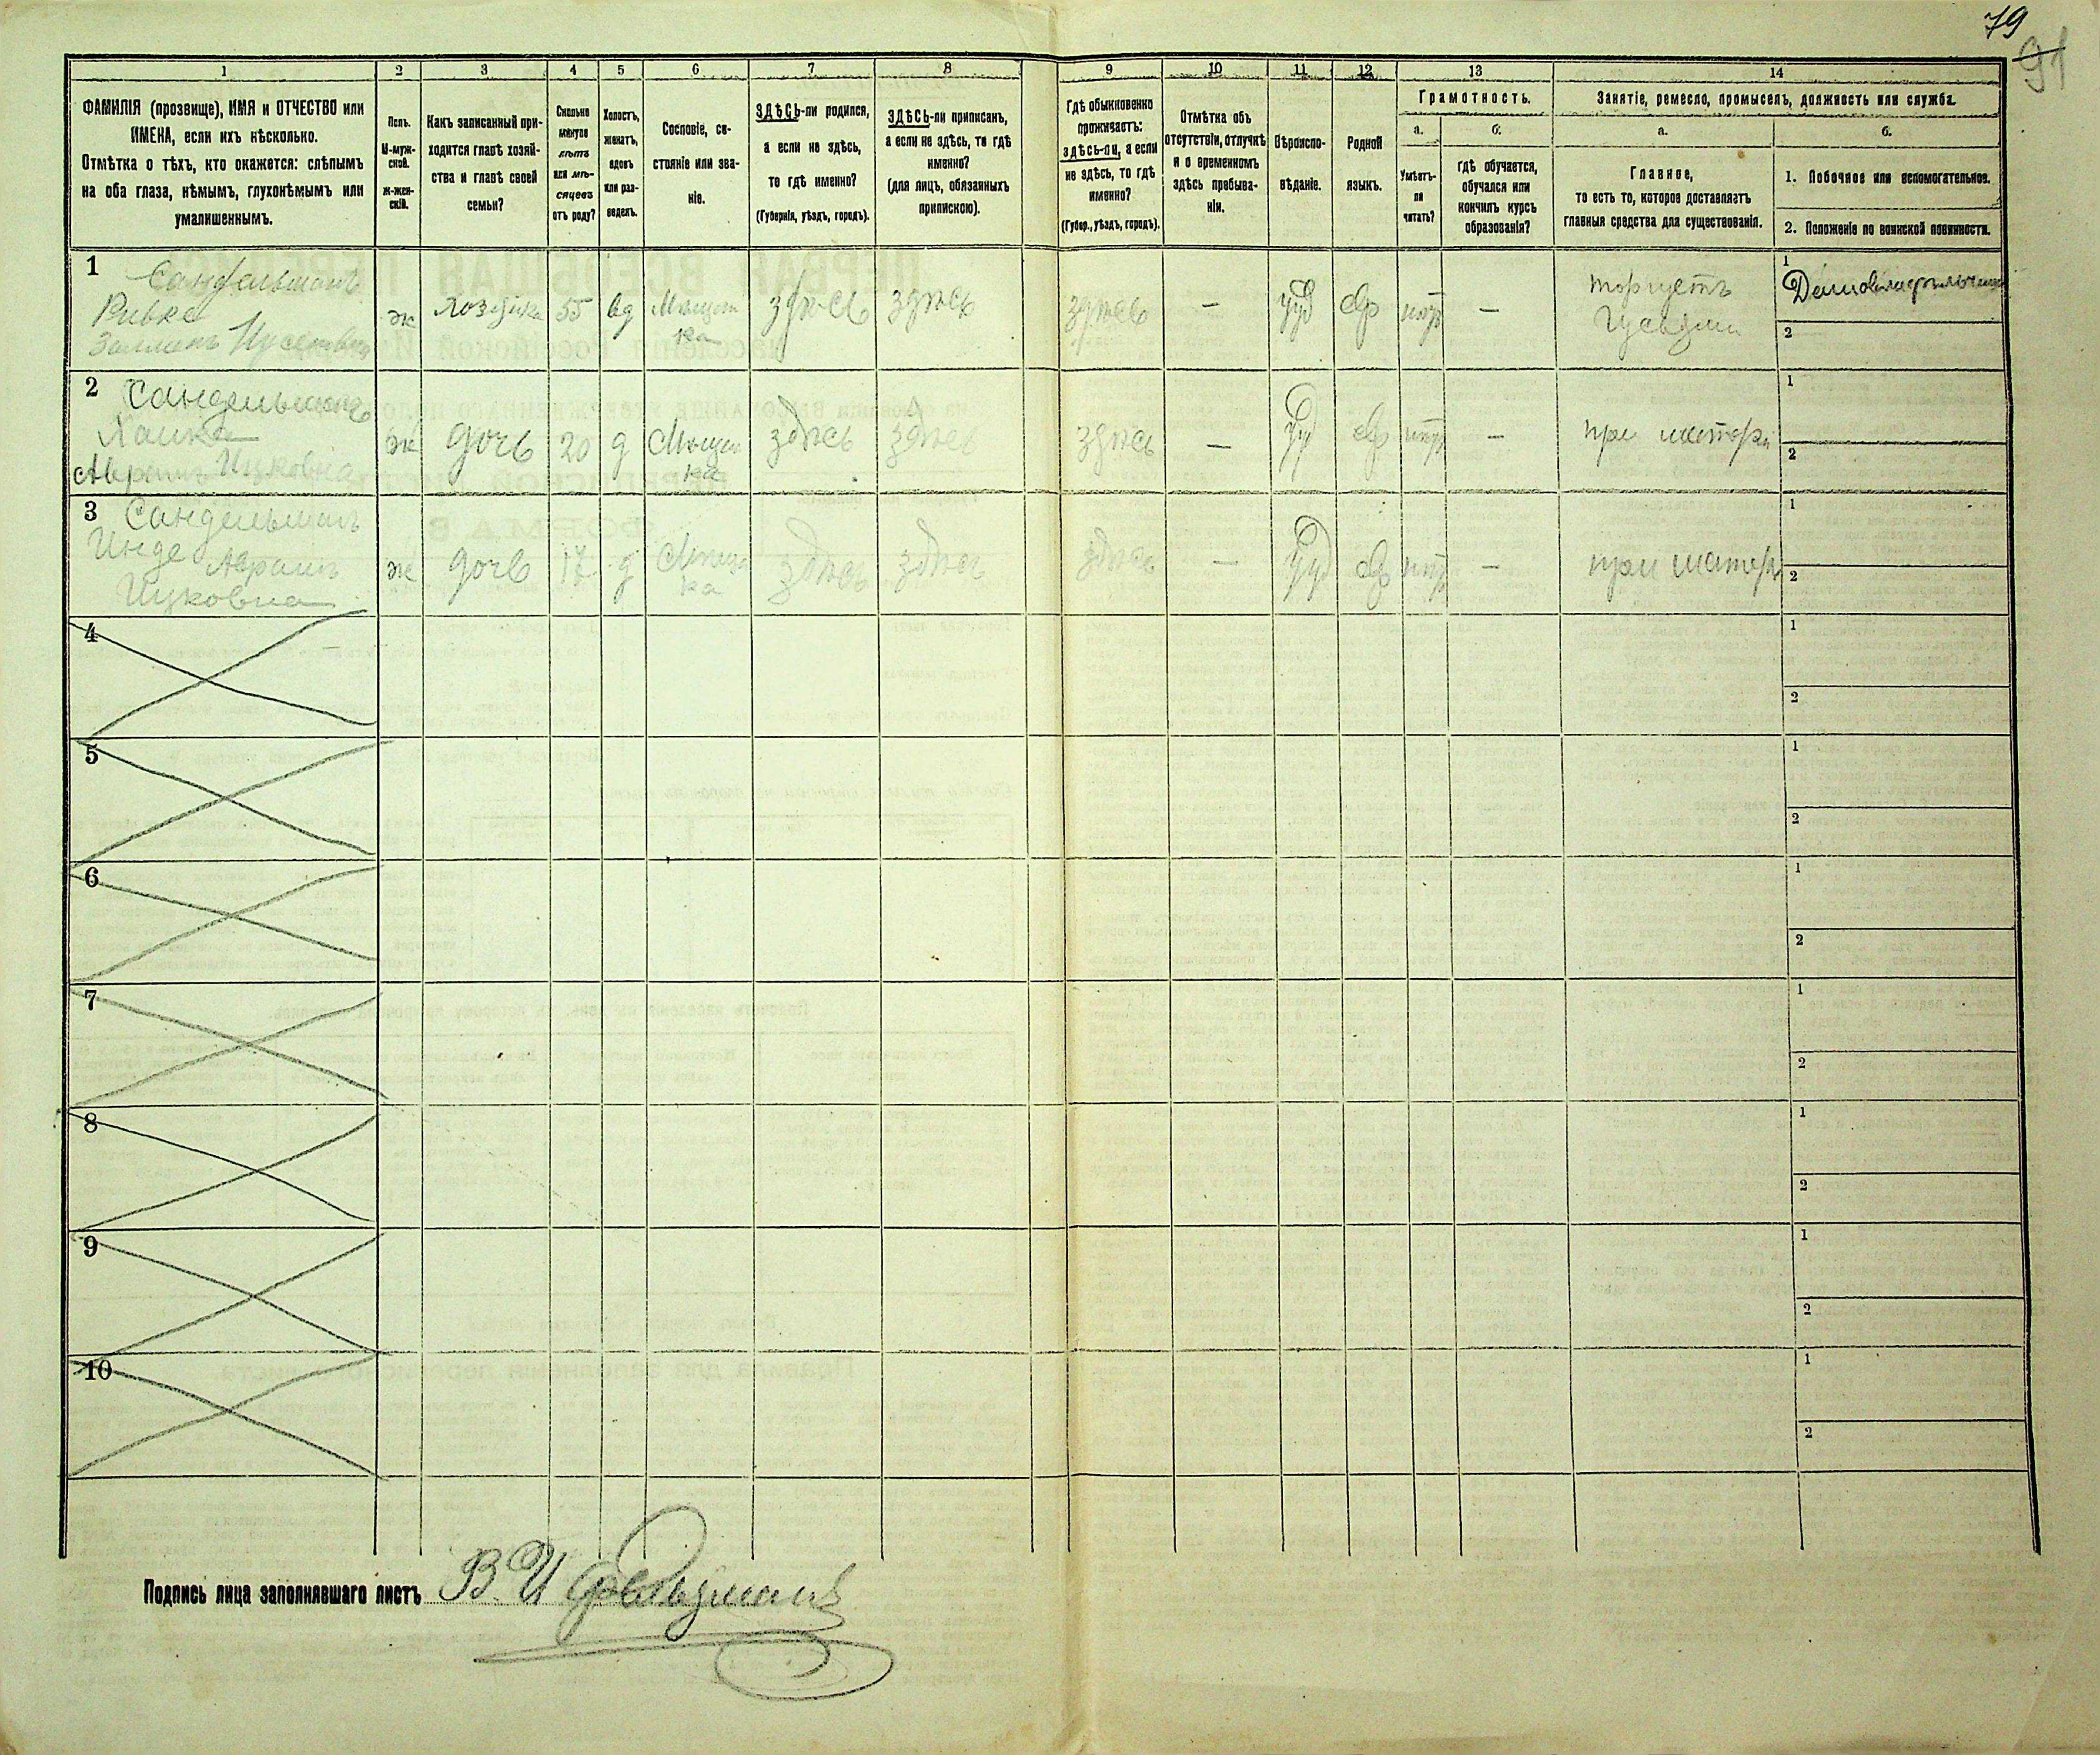 79
91
1 2 3 4 5 6 7 8 9 10 11 12 13 14
ФАМИЛІЯ (прозвище), ИМЯ и ОТЧЕСТВО или
ИМЕНА, если ихъ нѣсколько.
Отмѣтка о тѣхъ, кто окажется: слѣпымъ
на оба глаза, нѣмымъ, глухонѣмымъ или
умалишеннымъ.
Полъ.
М-муж-
ской.
ж-жен-
скій.
Какъ записанный при-
ходится главѣ хозяй-
ства и главѣ своей
семьи?
Сколько
минуло
лѣтъ
или мѣ-
сяцевъ
отъ роду?
Холостъ,
женатъ,
вдовъ
или раз-
веденъ.
Сословіе, со-
стояніе или зва-
ніе.
ЗДѢСЬ-ли родился,
а если не здѣсь,
то гдѣ именно?
(Губернія, уѣздъ, городъ).
ЗДѢСЬ-ли приписанъ,
а если не здѣсь, то гдѣ
именно?
(для лицъ, обязанныхъ
припискою).
Гдѣ обыкновенно
проживаетъ:
здѣсь-ли, а если
не здѣсь, то гдѣ
именно?
(Губер., уѣздъ, городъ).
Отмѣтка объ
отсутствіи, отлучкѣ
и о временномъ
здѣсь пребыва-
ніи.
Вѣроиспо-
вѣданіе.
Родной
языкъ.
Грамотность.
а.
Умѣетъ-
ли
читать?
б.
Гдѣ обучается,
обучался или
кончилъ курсъ
образованія?
Занятіе, ремесло, промыселъ, должность или служба.
а.
Главное,
то есть то, которое доставляетъ
главныя средства для существованія.
б.
1. Побочное или вспомогательное.
2. Положеніе по воинской повинности.
1 Сандельманъ
Ривка
ж хозяйка 55 вд Мѣщан
ка
здѣсь здѣсь здѣсь — Іуд Евр нѣтъ —
торгуетъ
1
2
2 Сандельманъ
Хайка
Аврамъ Ицковна
ж дочь 20 д Мѣщан
ка
здѣсь здѣсь здѣсь — Іуд Евр нѣтъ — при матери
1
2
3 Сандельманъ
Инде Аврамъ
Ицковна
ж дочь 17 д Мѣщан
ка
здѣсь здѣсь здѣсь — Іуд Евр нѣтъ — при матери
1
2
4
1
2
5
1
2
6
1
2
7
1
2
8
1
2
9
1
2
10
1
2
Подпись лица заполнявшаго листъ В. И.